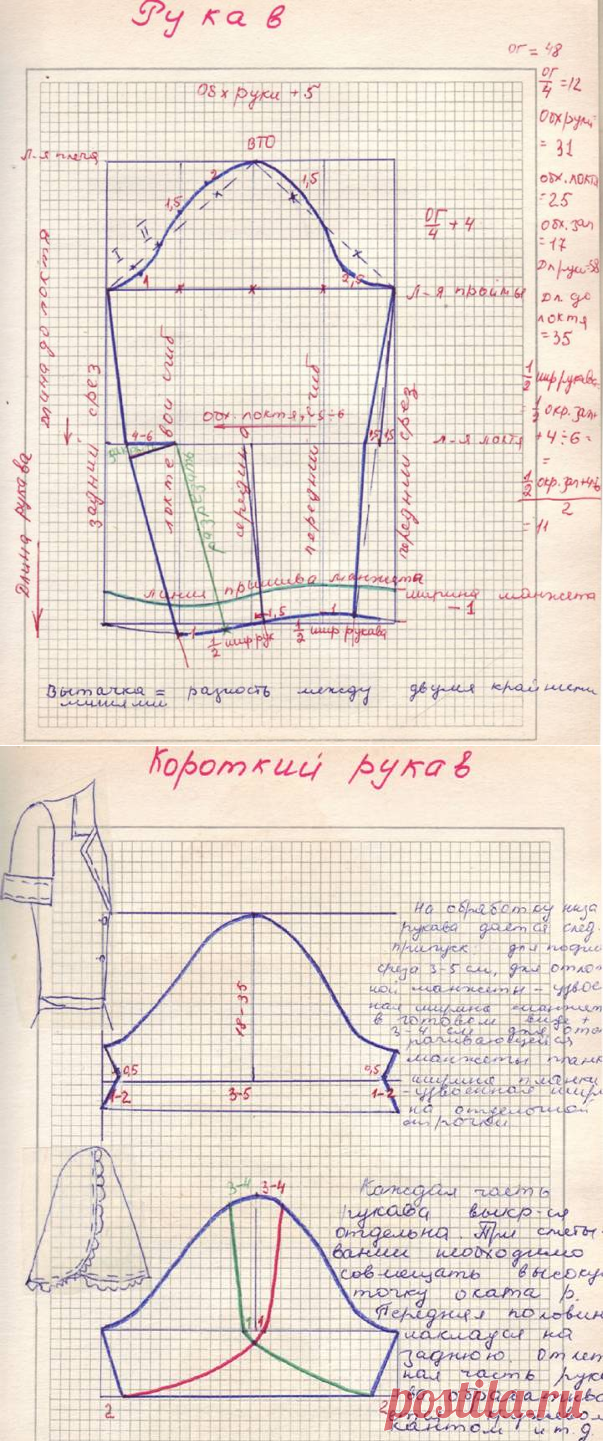 Рукав
ОГ = 48
ОГ/4 = 12
Обх руки + 5
Обхруки
= 31
ВТО
Л-я плеча
обх. локтя
= 25
обх. зап
= 17
Дл рук=58
Дл. до
локтя
= 35
2
1,5
1,5
I
II
1
2,5
ОГ/4 + 4
Л-я проймы
длина до локтя
задний срез
локтевой сгиб
середина
передний сгиб
передний срез
обх. локтя, +5÷6
4-6
1,5
1,5
л-я локтя
1/2 шир рукава
= 1/2 окр. зап
+ 4÷6 =
=
2
= 11
Длина рукава
разрезать
линия пришива манжета
ширина манжета
- 1
1
1,5
1
1/2 шир рук
1/2 шир рукава
Вытачка = разность между двумя крайними
линиями
Короткий рукав
На обработку низа
рукава дается след.
припуск для подги
среза 3-5 см, для отло
ной манжеты - удвое
ная ширина манжет
в готовом виде +
3-4 см для отво
рачивающейся
манжеты планк
ширина планки
- удвоенная шири
на отделочной
строчки
18-35
0,5
0,5
1-2
3-5
1-2
3-4
3-4
Каждая часть
рукава выкр-ся
отдельна. При сметы-
вании необходимо
совмещать высоку
точку оката р.
Передняя половин
накладся на
заднюю. Отлет
ная часть рука
кантом и т.д.
1
1
2
2
postila.ru